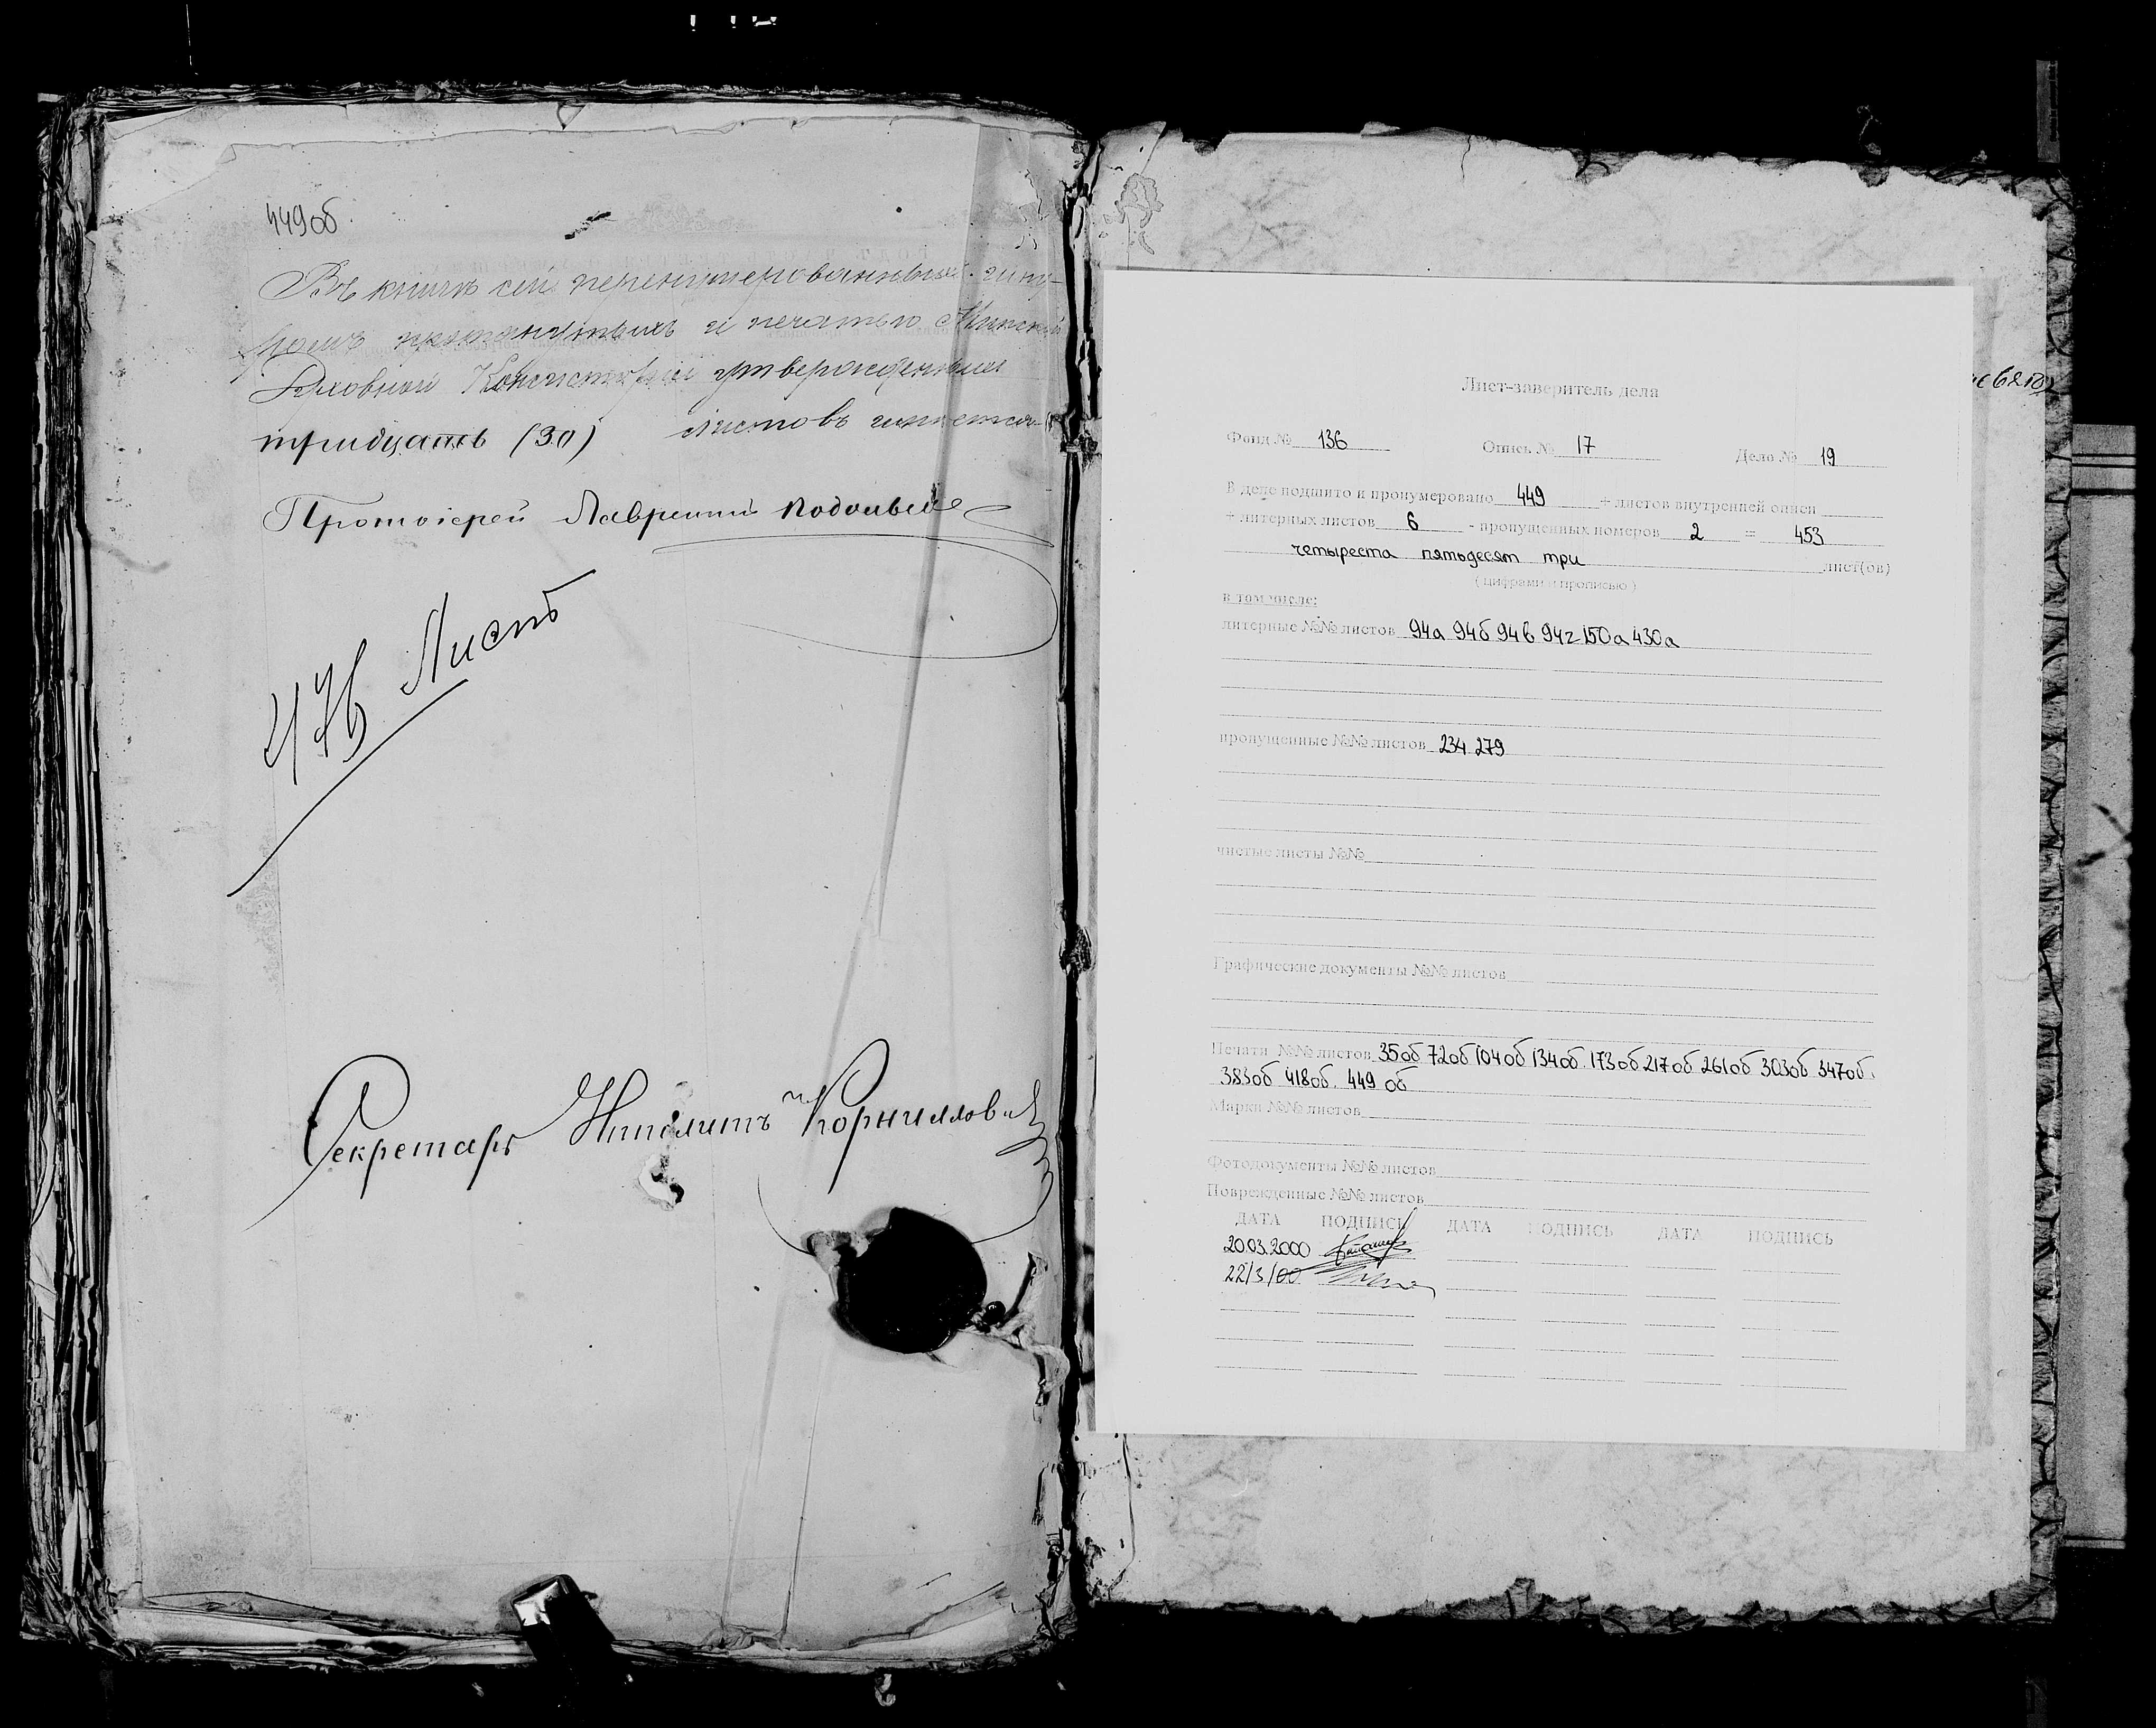 449об
Въ книгѣ сей перенумерованныхъ, шну-
ромъ прошнурованныхъ и печатью Минской
Духовной Консисторіи утвержденныхъ
тридцать (30) листовъ имѣется
Протоіерей Лаврентій
476 Листъ
Секретарь Ипполитъ Корнилловичъ
Лист-заверитель дела
Фонд № 136 Опись № 17 Дело № 19
В деле подшито и пронумеровано 449 + листов внутренней описи
+ литерных листов 6 - пропущенных номеров 2 = 453
четыреста пятьдесят три лист(ов)
(цифрами и прописью)
в том числе:
литерные №№ листов 94а 94б 94в 94г 150а 430а
пропущенные №№ листов 234 279
чистые листы №№
Графические документы №№ листов
Печати №№ листов 35об 72об 104об 134об. 173об 217об 261об 303об 347об.
383об 418об. 449 об
Марки №№ листов
Фотодокументы №№ листов
Поврежденные №№ листов
ДАТА ПОДПИСЬ ДАТА ПОДПИСЬ ДАТА ПОДПИСЬ
20.03.2000
22/3/00